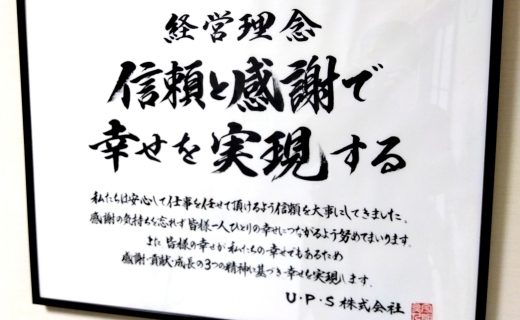 経営理念
信頼と感謝で
幸せを実現する
私たちは安心して仕事を任せて頂けるよう信頼を大事にしてきました。
感謝の気持ちを忘れず皆様一人ひとりの幸せにつながるよう努めてまいります。
また皆様の幸せが私たちの幸せでもあるため
感謝・貢献・成長の3つの精神に基づき幸せを実現します。
U・P・S株式会社